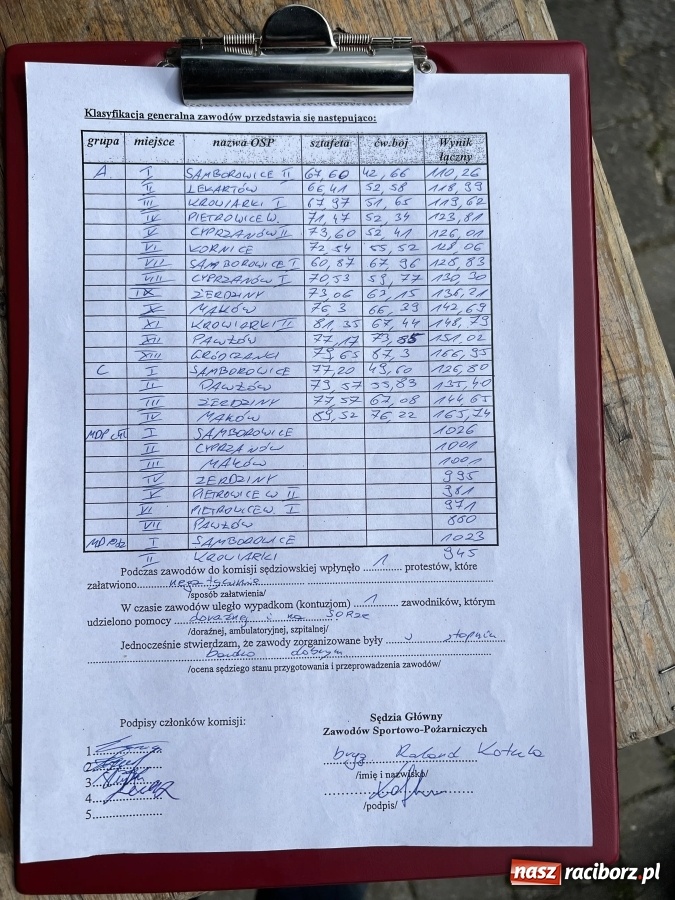 Klasyfikacja generalna zawodów przedstawia się następująco:
grupa miejsce nazwa OSP sztafeta ćw.boj Wynik łączny
A I SAMBOROWICE II 67,60 42,66 110,26
II LEKARTÓW 66,41 52,58 118,99
III KROWIARKI I 67,97 51,65 119,62
IV PIETROWICE W. 71,47 52,34 123,81
V CYPRZANÓW II 73,60 52,41 126,01
VI KORNICE 72,54 55,52 128,06
VII SAMBOROWICE I 60,87 67,96 128,83
VIII CYPRZANÓW I 70,53 59,77 130,30
IX ŻERDZINY 73,06 63,15 136,21
X MAKÓW 76,3 66,39 142,69
XI KROWIARKI II 81,35 67,44 148,79
XII PAWŁÓW 77,17 73,85 151,02
XIII GRÓDCZANKI 79,65 87,3 166,95
C I SAMBOROWICE 77,20 49,60 126,80
II PAWŁÓW 79,57 55,83 135,40
III ŻERDZINY 77,57 67,08 144,65
IV MAKÓW 89,52 76,22 165,74
MDP I SAMBOROWICE 1026
II CYPRZANÓW 1001
III MAKÓW 1001
IV ŻERDZINY 995
V PIETROWICE W II 981
VI PIETROWICE W I 971
VII PAWŁÓW 860
MDP I SAMBOROWICE 1023
II KROWIARKI 945
Podczas zawodów do komisji sędziowskiej wpłynęło 1 protestów, które
załatwiono negatywnie
/sposób załatwienia/
W czasie zawodów uległo wypadkom (kontuzjom) 1 zawodników, którym
udzielono pomocy doraźnej i na SORze
/doraźnej, ambulatoryjnej, szpitalnej/
Jednocześnie stwierdzam, że zawody zorganizowane były w stopniu
bardzo dobrym
/ocena sędziego stanu przygotowania i przeprowadzenia zawodów/
Podpisy członków komisji:
Sędzia Główny
Zawodów Sportowo-Pożarniczych
1.
2.
3.
4.
5.
bryg Roland Kotula
/imię i nazwisko/
/podpis/
nasz raciborz.pl